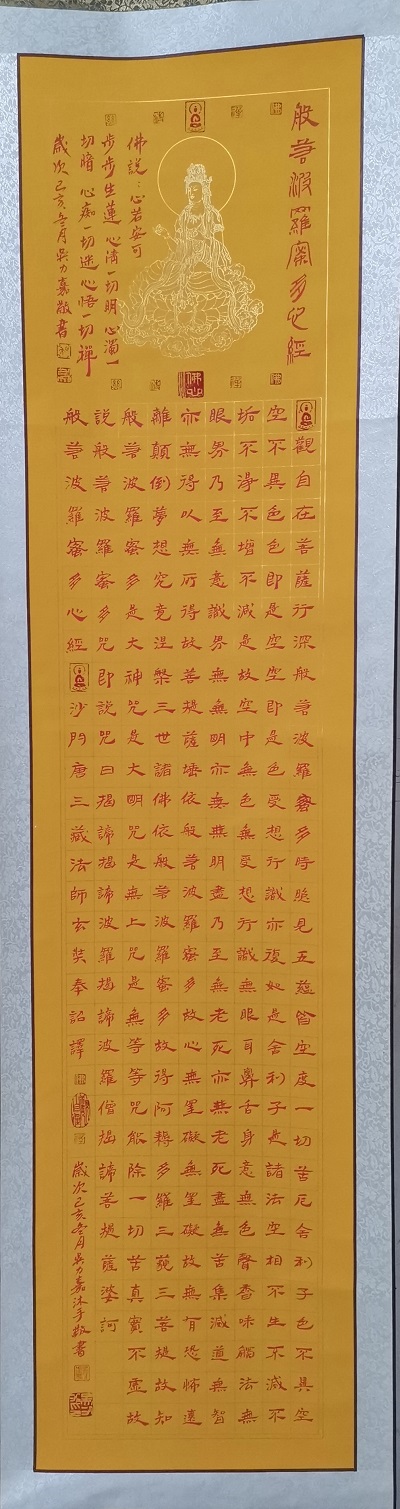 般若波羅蜜多心經
佛說：心若安可
步步生蓮 心清一切明 心濁一
切暗 心痴一切迷 心悟一切禪
歲次己亥冬月吳力嘉敬書
觀自在菩薩行深般若波羅蜜多時照見五蘊皆空度一切苦厄舍利子色不異空
空不異色色即是空空即是色受想行識亦復如是舍利子是諸法空相不生不滅不
垢不淨不增不減是故空中無色無受想行識無眼耳鼻舌身意無色聲香味觸法無
眼界乃至無意識界無無明亦無無明盡乃至無老死亦無老死盡無苦集滅道無智
亦無得以無所得故菩提薩埵依般若波羅蜜多故心無罣礙無罣礙故無有恐怖遠
離顛倒夢想究竟涅槃三世諸佛依般若波羅蜜多故得阿耨多羅三藐三菩提故知
般若波羅蜜多是大神咒是大明咒是無上咒是無等等咒能除一切苦真實不虛故
說般若波羅蜜多咒即說咒曰揭諦揭諦波羅揭諦波羅僧揭諦菩提薩婆訶
般若波羅蜜多心經 沙門唐三藏法師玄奘奉詔譯 歲次己亥冬月吳力嘉沐手敬書